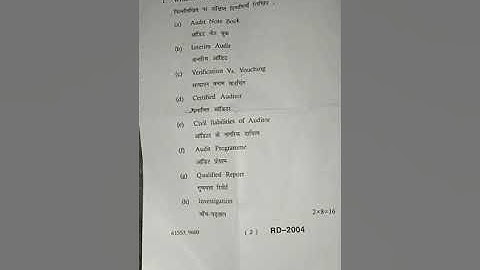 निम्नलिखित पर संक्षिप्त टिप्पणियाँ लिखिए :
(a) Audit Note Book
ऑडिट नोट बुक
(b) Interim Audit
अन्तरिम ऑडिट
(c) Verification Vs. Vouching
सत्यापन बनाम
(d) Certified Auditor
ऑडिटर
(e) Civil liabilities of Auditor
ऑडिटर के नागरिक दायित्व
(f) Audit Programme
ऑडिट प्रोग्राम
(g) Qualified Report
रिपोर्ट
(h) Investigation
जाँच-पड़ताल
2×8=16
( 2 ) RD–2004